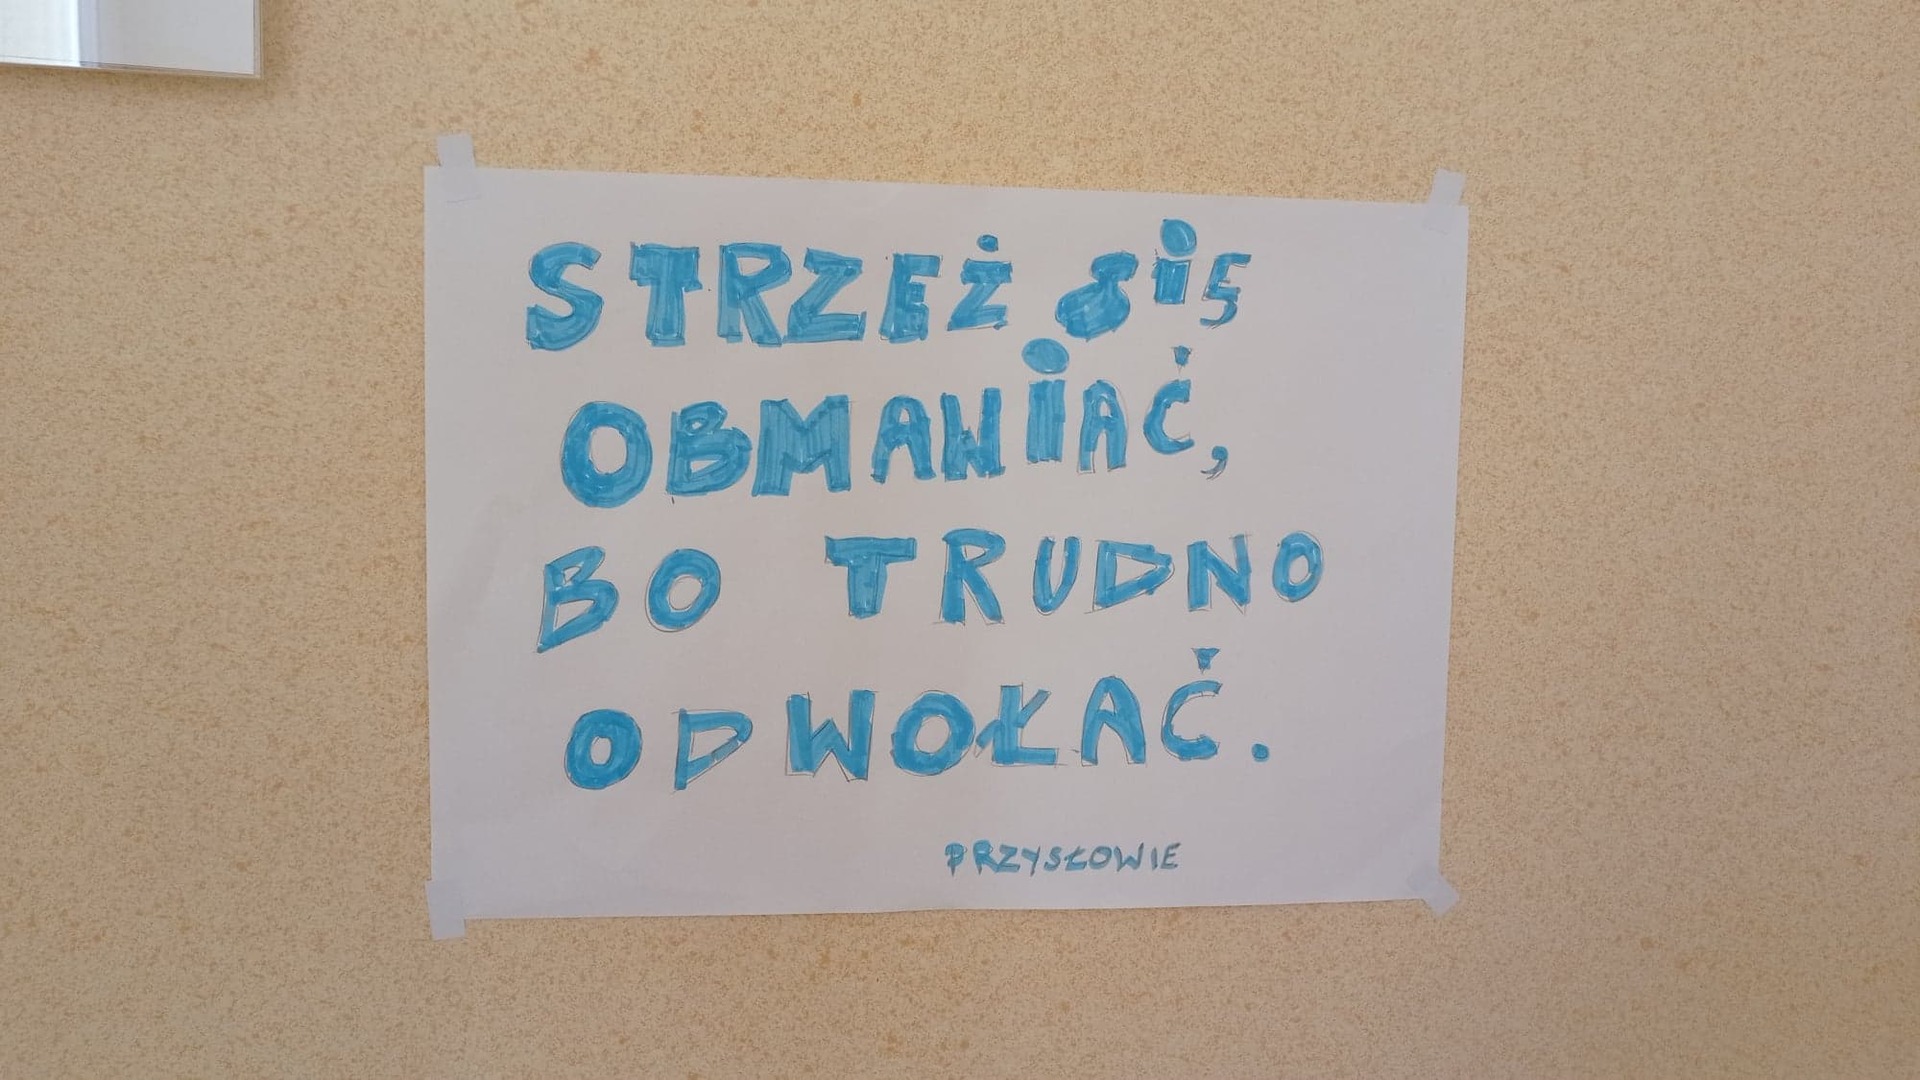 STRZEŻ SIĘ
OBMAWIAĆ,
BO TRUDNO
ODWOŁAĆ.
PRZYSŁOWIE